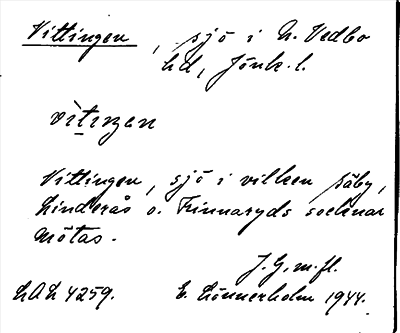 Vittingen, sjö i N. Vedbo
hd, Jönk. l.
vìtiŋen
Vittingen, sjö i vilken Säby,
Linderås o. Frinnaryds socknar
mötas.
J. G. m. fl.
LAL 4259. E. Lönnerholm 1944.